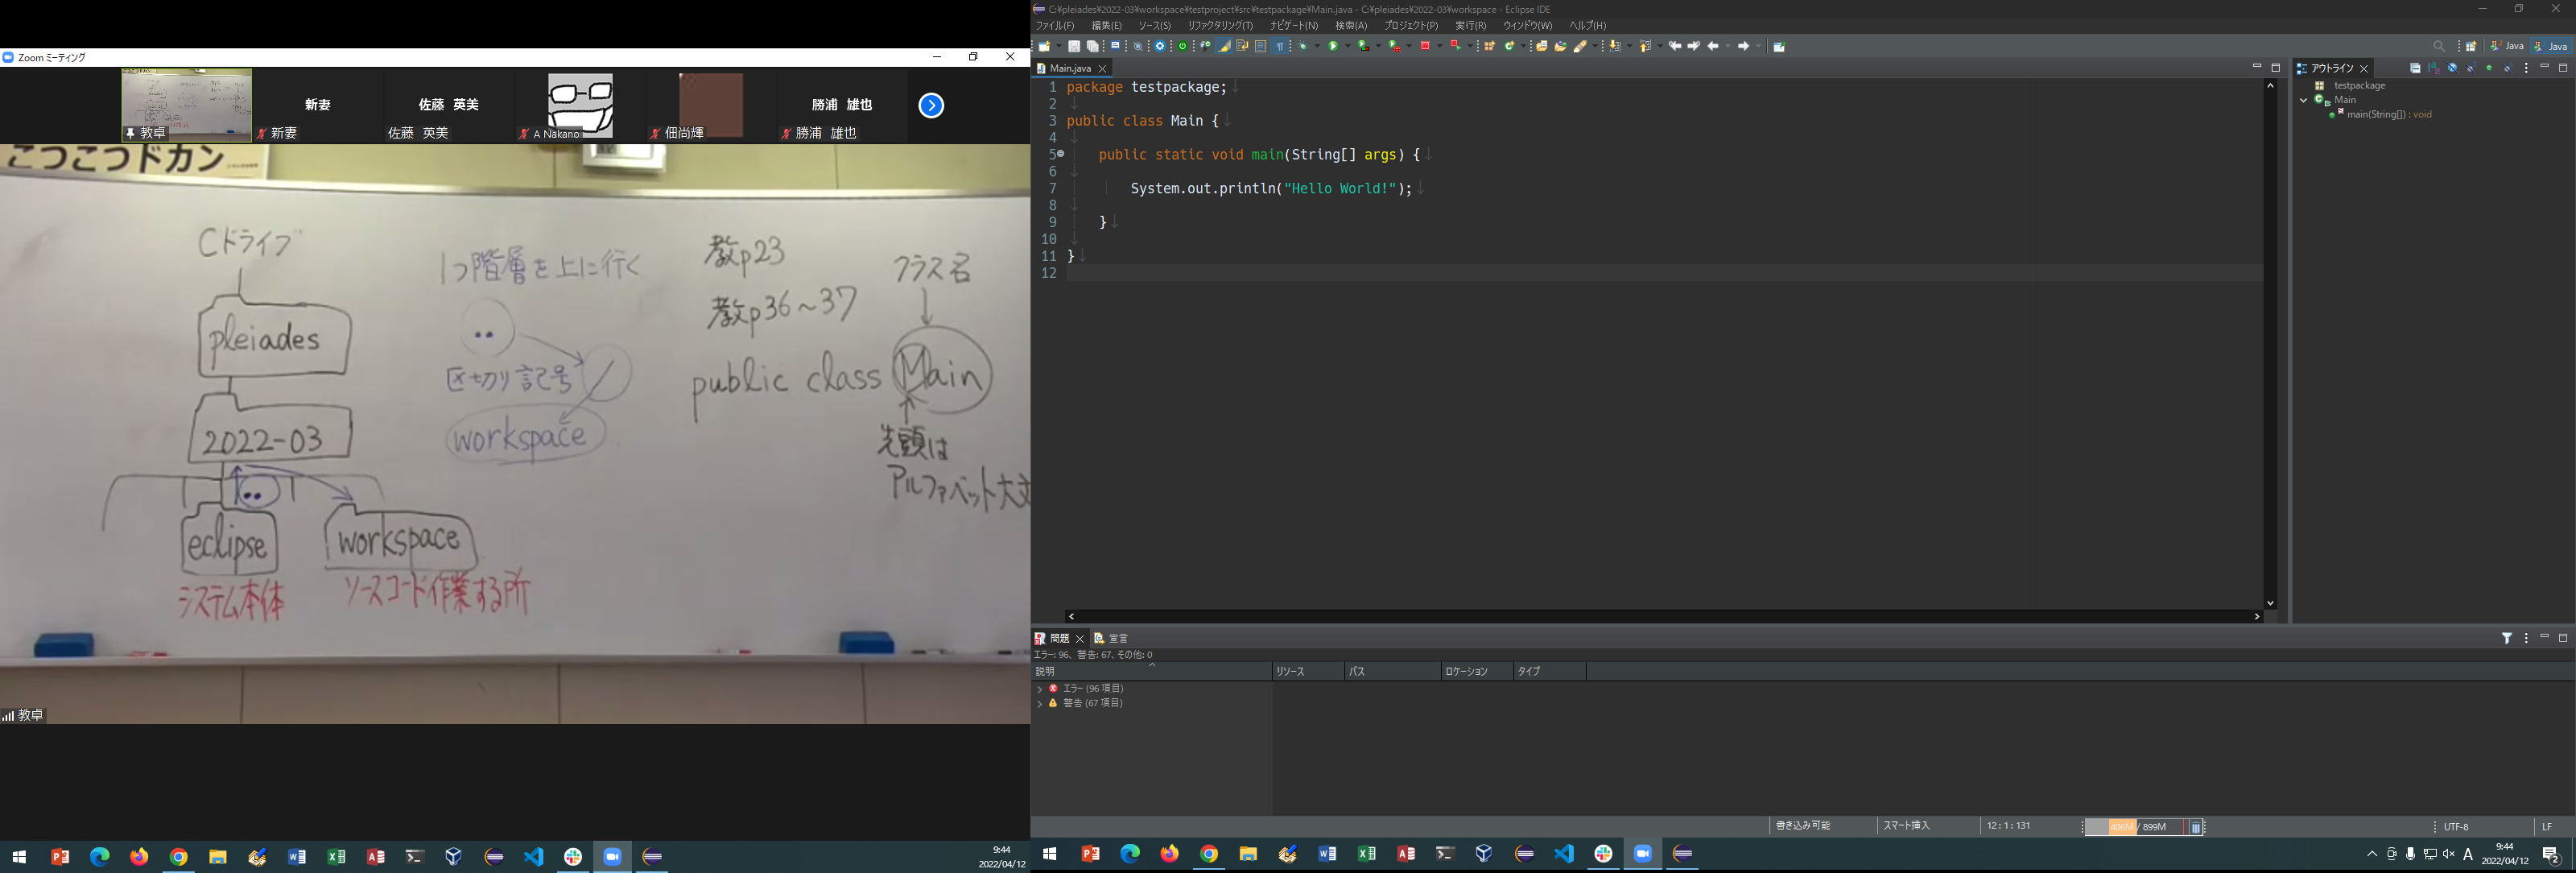 Zoom ミーティング
新妻
佐藤 英美
勝浦 雄也
教卓
新妻
佐藤 英美
A Nakano
佃尚輝
勝浦 雄也
こつこつドカン
Cドライブ
pleiades
2022-03
eclipse
システム本体
workspace
ソースコード作業する所
1つ階層を上に行く
..
区切り記号
/
workspace
教p23
教p36~37
クラス名
public class Main
先頭は
アルファベット大文
教卓
9:44
2022/04/12
C:¥pleiades¥2022-03¥workspace¥testproject¥src¥testpackage¥Main.java - C:¥pleiades¥2022-03¥workspace - Eclipse IDE
ファイル(F) 編集(E) ソース(S) リファクタリング(T) ナビゲート(N) 検索(A) プロジェクト(P) 実行(R) ウィンドウ(W) ヘルプ(H)
Java Java
Main.java
1 package testpackage;↓
2 ↓
3 public class Main {↓
4 ↓
5 public static void main(String[] args) {↓
6 ↓
7 System.out.println("Hello World!");↓
8 ↓
9 }↓
10 ↓
11 }↓
12
アウトライン
testpackage
Main
main(String[]) : void
問題 宣言
エラー: 96、警告: 67、その他: 0
説明 リソース パス ロケーション タイプ
エラー (96 項目)
警告 (67 項目)
書き込み可能 スマート挿入 12 : 1 : 131 406M / 899M UTF-8 LF
A
9:44
2022/04/12
2